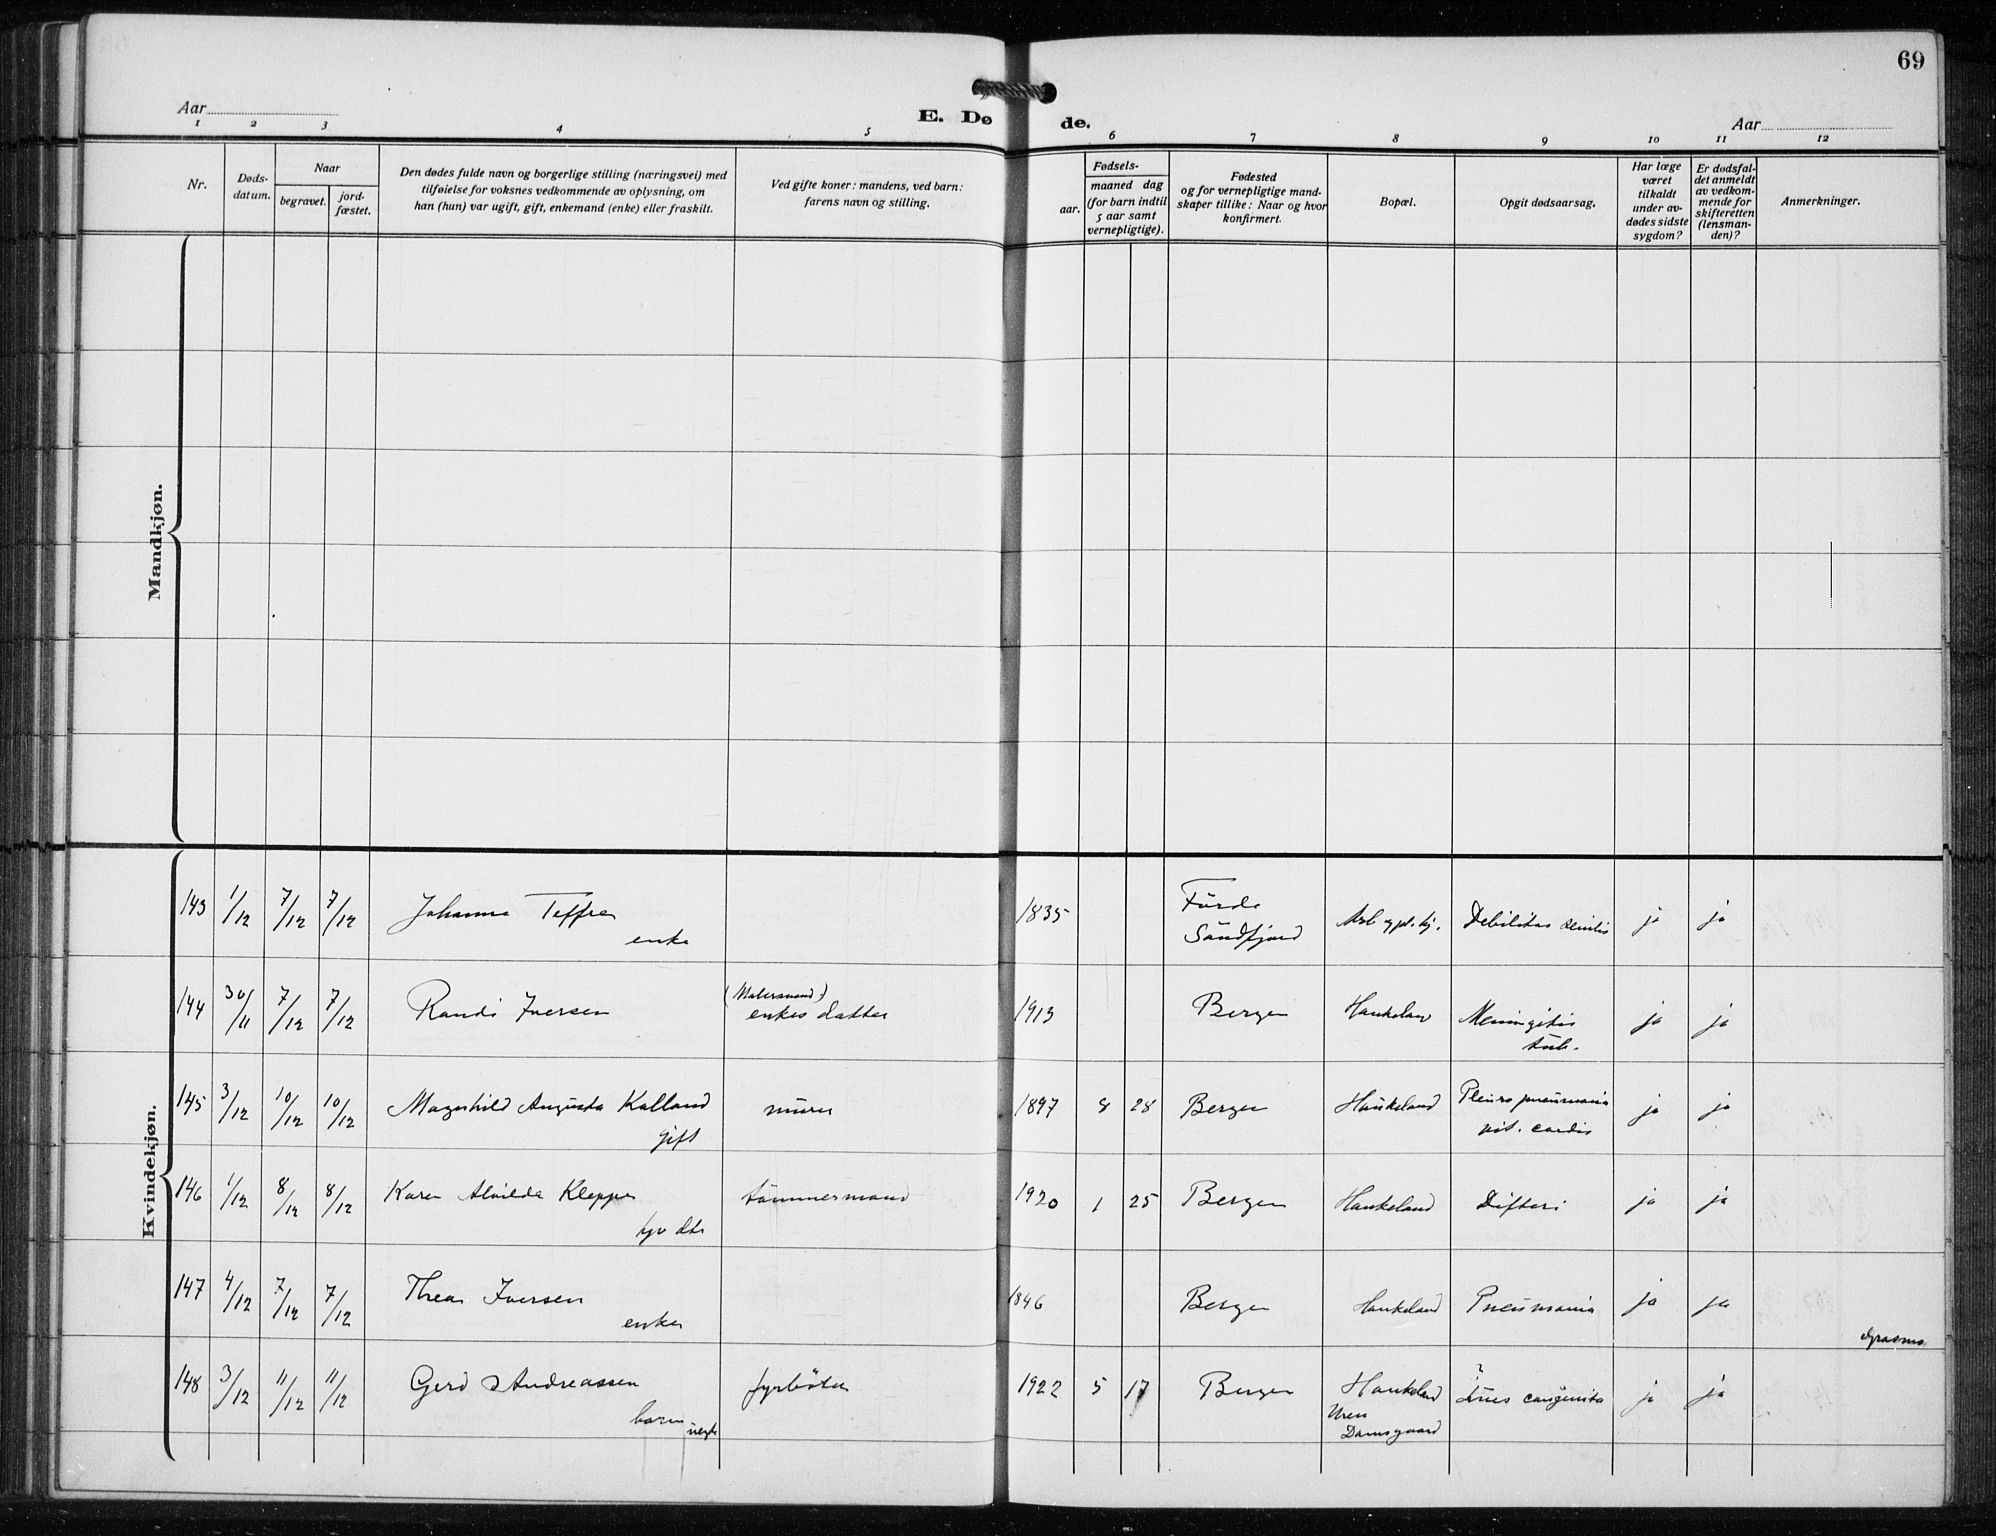 69
Aar
E. Dø de.
Aar
1 2 3 4 5 6 7 8 9 10 11 12
Nr.
Døds-
datum.
Naar
begravet.
jord-
fæstet.
Den dødes fulde navn og borgerlige stilling (næringsvei) med
tilføielse for voksnes vedkommende av oplysning, om
han (hun) var ugift, gift, enkemand (enke) eller fraskilt.
Ved gifte koner: mandens, ved barn:
farens navn og stilling.
Fødsels-
aar.
maaned dag
(for barn indtil
5 aar samt
vernepligtige).
Fødested
og for vernepligtige mand-
skaper tillike: Naar og hvor
konfirmert.
Bopæl.
Opgit dødsaarsag.
Har læge
været
tilkaldt
under av-
dødes sidste
sygdom?
Er dødsfal-
det anmeldt
av vedkom-
mende for
skifteretten
(lensman-
den)?
Anmerkninger.
Mandkjøn.
Kvindekjøn.
143 1/12 7/12 7/12 Johanna Teffre 1835 Förde Debilitas senilis ja ja
enke Söndfjord
(Malersvend)
144 30/11 7/12 7/12 Randi Iversen enkes datter 1913 Bergen Haukeland Meningitis ja ja
tub.
145 3/12 10/12 10/12 Magnhild Augusta Kalland murer 1897 8 28 Bergen Haukeland Pleuro pneumonia ja ja
gift vit. cordis
146 1/12 8/12 8/12 Karen Alvilda Kleppe tömmermand 1920 1 25 Bergen Haukeland Difteri ja ja
dtr
147 4/12 7/12 7/12 Thea Iversen 1846 Bergen Haukeland Pneumonia ja ja
enke
148 3/12 11/12 11/12 Gerd Andreassen fyrböter 1922 5 17 Bergen Haukeland ? Lues congenita ja ja
barn
Uren
Damsgaard